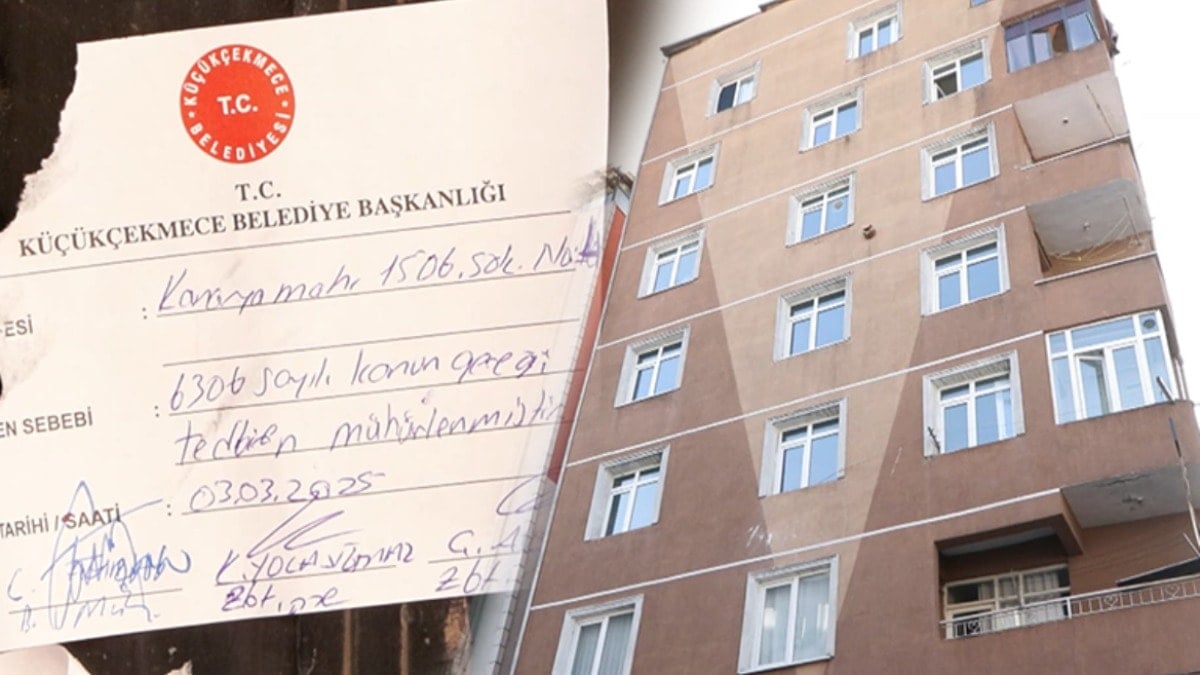 KÜÇÜKÇEKMECE
T.C.
BELEDİYESİ
T.C.
KÜÇÜKÇEKMECE BELEDİYE BAŞKANLIĞI
ESİ : Kanarya mah. 1506. sok. No:
EN SEBEBİ : 6306 sayılı kanun gereği
tedbiren mühürlenmiştir
TARİHİ / SAATİ : 03.03.2025
C. K. YOLAÇ G. A
B. Müh. Zbt. Zbt